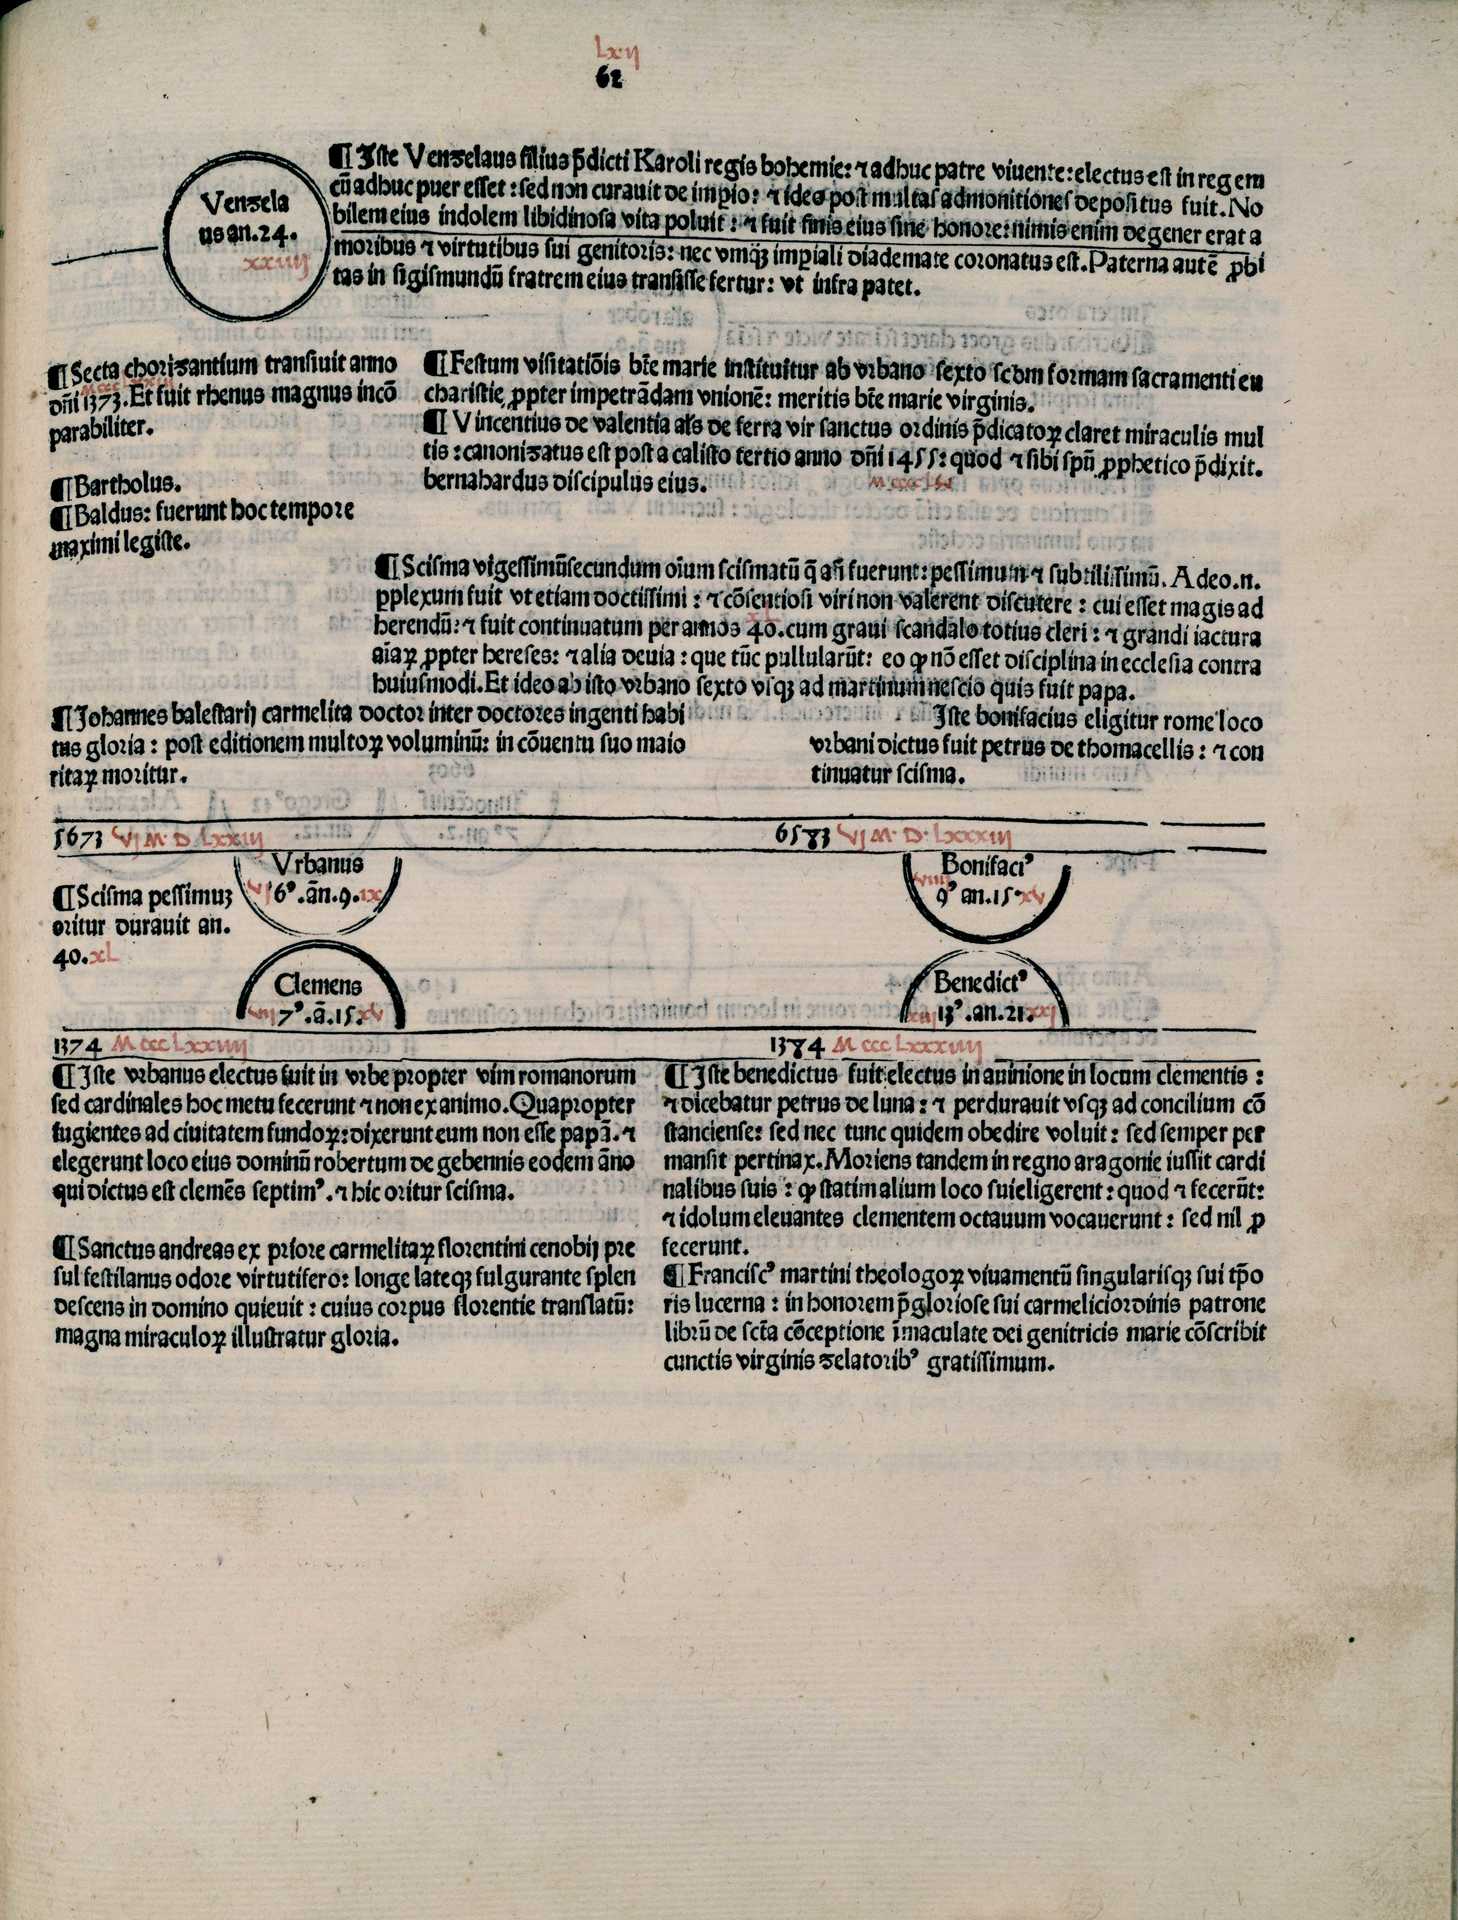 Lxij
62
Venzela
us an. 24.
xxiiij
¶ Iste Venzelaus filius p̄dicti Karoli regis bohemie: ⁊ adhuc patre viuente: electus est in regem
cū adhuc puer esset: sed non curauit de imꝑio: ⁊ ideo post multas admonitiones depositus fuit. No
bilem eius indolem libidinosa vita poluit: ⁊ fuit finis eius sine honore: nimis enim degener erat a
moribus ⁊ virtutibus sui genitoris: nec vmqꝫ imꝑiali diademate coronatus est. Paterna autē ꝓbi
tas in sigismundū fratrem eius transisse fertur: vt infra patet.
¶ Secta chorizantium transiuit anno
dn̄i 1373. Et fuit rhenus magnus incō
parabiliter.
¶ Bartholus.
¶ Baldus: fuerunt hoc tempore
maximi legiste.
¶ Festum visitatiōis bt̄e marie instituitur ab vrbano sexto scdm formam sacramenti eu
charistie ꝓpter impetrādam vnionē: meritis bt̄e marie virginis.
¶ Vincentius de valentia al's de ferra vir sanctus ordinis p̄dicatoꝝ claret miraculis mul
tis: canonizatus est post a calisto tertio anno dn̄i 1455: quod ⁊ sibi spū ꝓphetico p̄dixit.
bernahardus discipulus eius.
¶ Scisma vigessimūsecundum oīum scismatū q̄ an̄ fuerunt: pessimum ⁊ subtilissimū. Adeo .n.
ꝑplexum fuit vt etiam doctissimi: ⁊ cōsentiosi viri non valerent discutere: cui esset magis ad
herendū: ⁊ fuit continuatum per annos 40. cum graui scandalo totius cleri: ⁊ grandi iactura
aīaꝝ ꝓpter hereses: ⁊ alia deuia: que tūc pullularūt: eo ꝙ nō esset disciplina in ecclesia contra
huiusmodi. Et ideo ab isto vrbano sexto vsqꝫ ad martinum nescio quis fuit papa.
¶ Johannes balestarij carmelita doctor inter doctores ingenti habi
tus gloria: post editionem multoꝝ voluminū: in cōuentu suo maio
ritaꝝ moritur.
Iste bonifacius eligitur rome loco
vrbani dictus fuit petrus de thomacellis: ⁊ con
tinuatur scisma.
5673 VJ M D LXXIIJ
6583 VJ M D LXXXIIJ
¶ Scisma pessimuꝫ
oritur durauit an.
40. xL
Vrbanus
vj 6ꝰ. ān. 9. ix
Clemens
vij 7ꝰ. ā. 15. xv
Bonifaciꝰ
viiij 9ꝰ an. 15. xv
Benedictꝰ
xiij 13ꝰ. an. 21. xxj
1374 M ccc Lxxiiij
1384 M ccc Lxxxiiij
¶ Iste vrbanus electus fuit in vrbe propter vim romanorum
sed cardinales hoc metu fecerunt ⁊ non ex animo. Quapropter
fugientes ad ciuitatem fundoꝝ: dixerunt eum non esse papā. ⁊
elegerunt loco eius dominū robertum de gebennis eodem āno
qui dictus est clemēs septimꝰ. ⁊ hic oritur scisma.
¶ Sanctus andreas ex priore carmelitaꝝ florentini cenobij pre
sul festilanus odore virtutifero: longe lateqꝫ fulgurante splen
descens in domino quieuit: cuius corpus florentie translatū:
magna miraculoꝝ illustratur gloria.
¶ Iste benedictus fuit electus in auinione in locum clementis:
⁊ dicebatur petrus de luna: ⁊ perdurauit vsqꝫ ad concilium cō
stanciense: sed nec tunc quidem obedire voluit: sed semper per
mansit pertinax. Moriens tandem in regno aragonie iussit cardi
nalibus suis: ꝙ statim alium loco sui eligerent: quod ⁊ fecerūt:
⁊ idolum eleuantes clementem octauum vocauerunt: sed nil ꝓ
fecerunt.
¶ Franciscꝰ martini theologoꝝ viuamentū singularisqꝫ sui tp̄o
ris lucerna: in honorem p̄gloriose sui carmelici ordinis patrone
librū de sct̄a cōceptione īmaculate dei genitricis marie cōscribit
cunctis virginis zelatoribꝰ gratissimum.